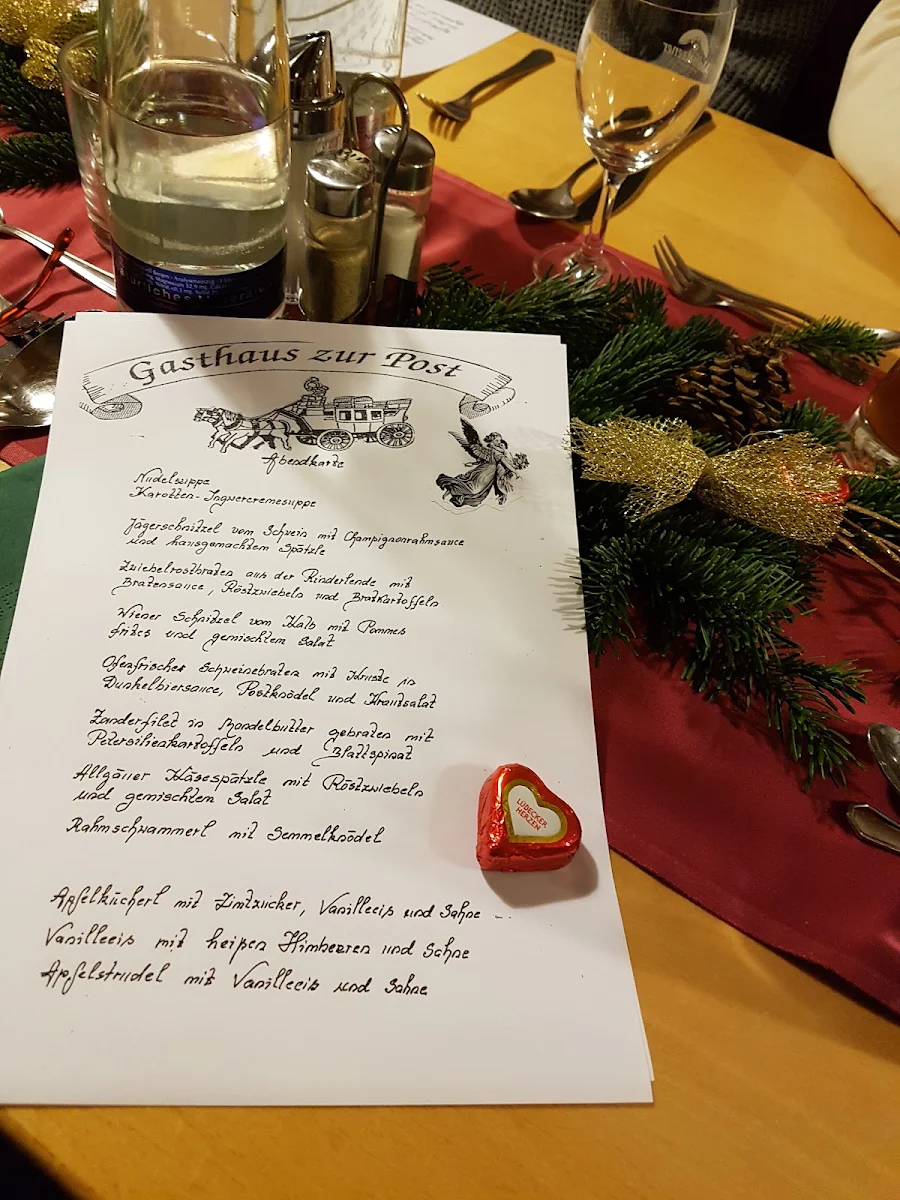 Gasthaus zur Post
Abendkarte
Nudelsuppe
Karotten-Ingwercremesuppe
Jägerschnitzel vom Schwein mit Champignonrahmsauce
und hausgemachtem Spätzle
Zwiebelrostbraten aus der Rinderlende mit
Bratensauce, Röstzwiebeln und Bratkartoffeln
Wiener Schnitzel vom Kalb mit Pommes
frites und gemischtem Salat
Ofenfrischer Schweinebraten mit Kruste in
Dunkelbiersauce, Postknödel und Krautsalat
Zanderfilet in Mandelbutter gebraten mit
Petersilienkartoffeln und Blattspinat
Allgäuer Käsespätzle mit Röstzwiebeln
und gemischtem Salat
Rahmschwammerl mit Semmelknödel
Apfelkücherl mit Zimtzucker, Vanilleeis und Sahne
Vanilleeis mit heißen Himbeeren und Sahne
Apfelstrudel mit Vanilleeis und Sahne
LÜBECKER
HERZEN